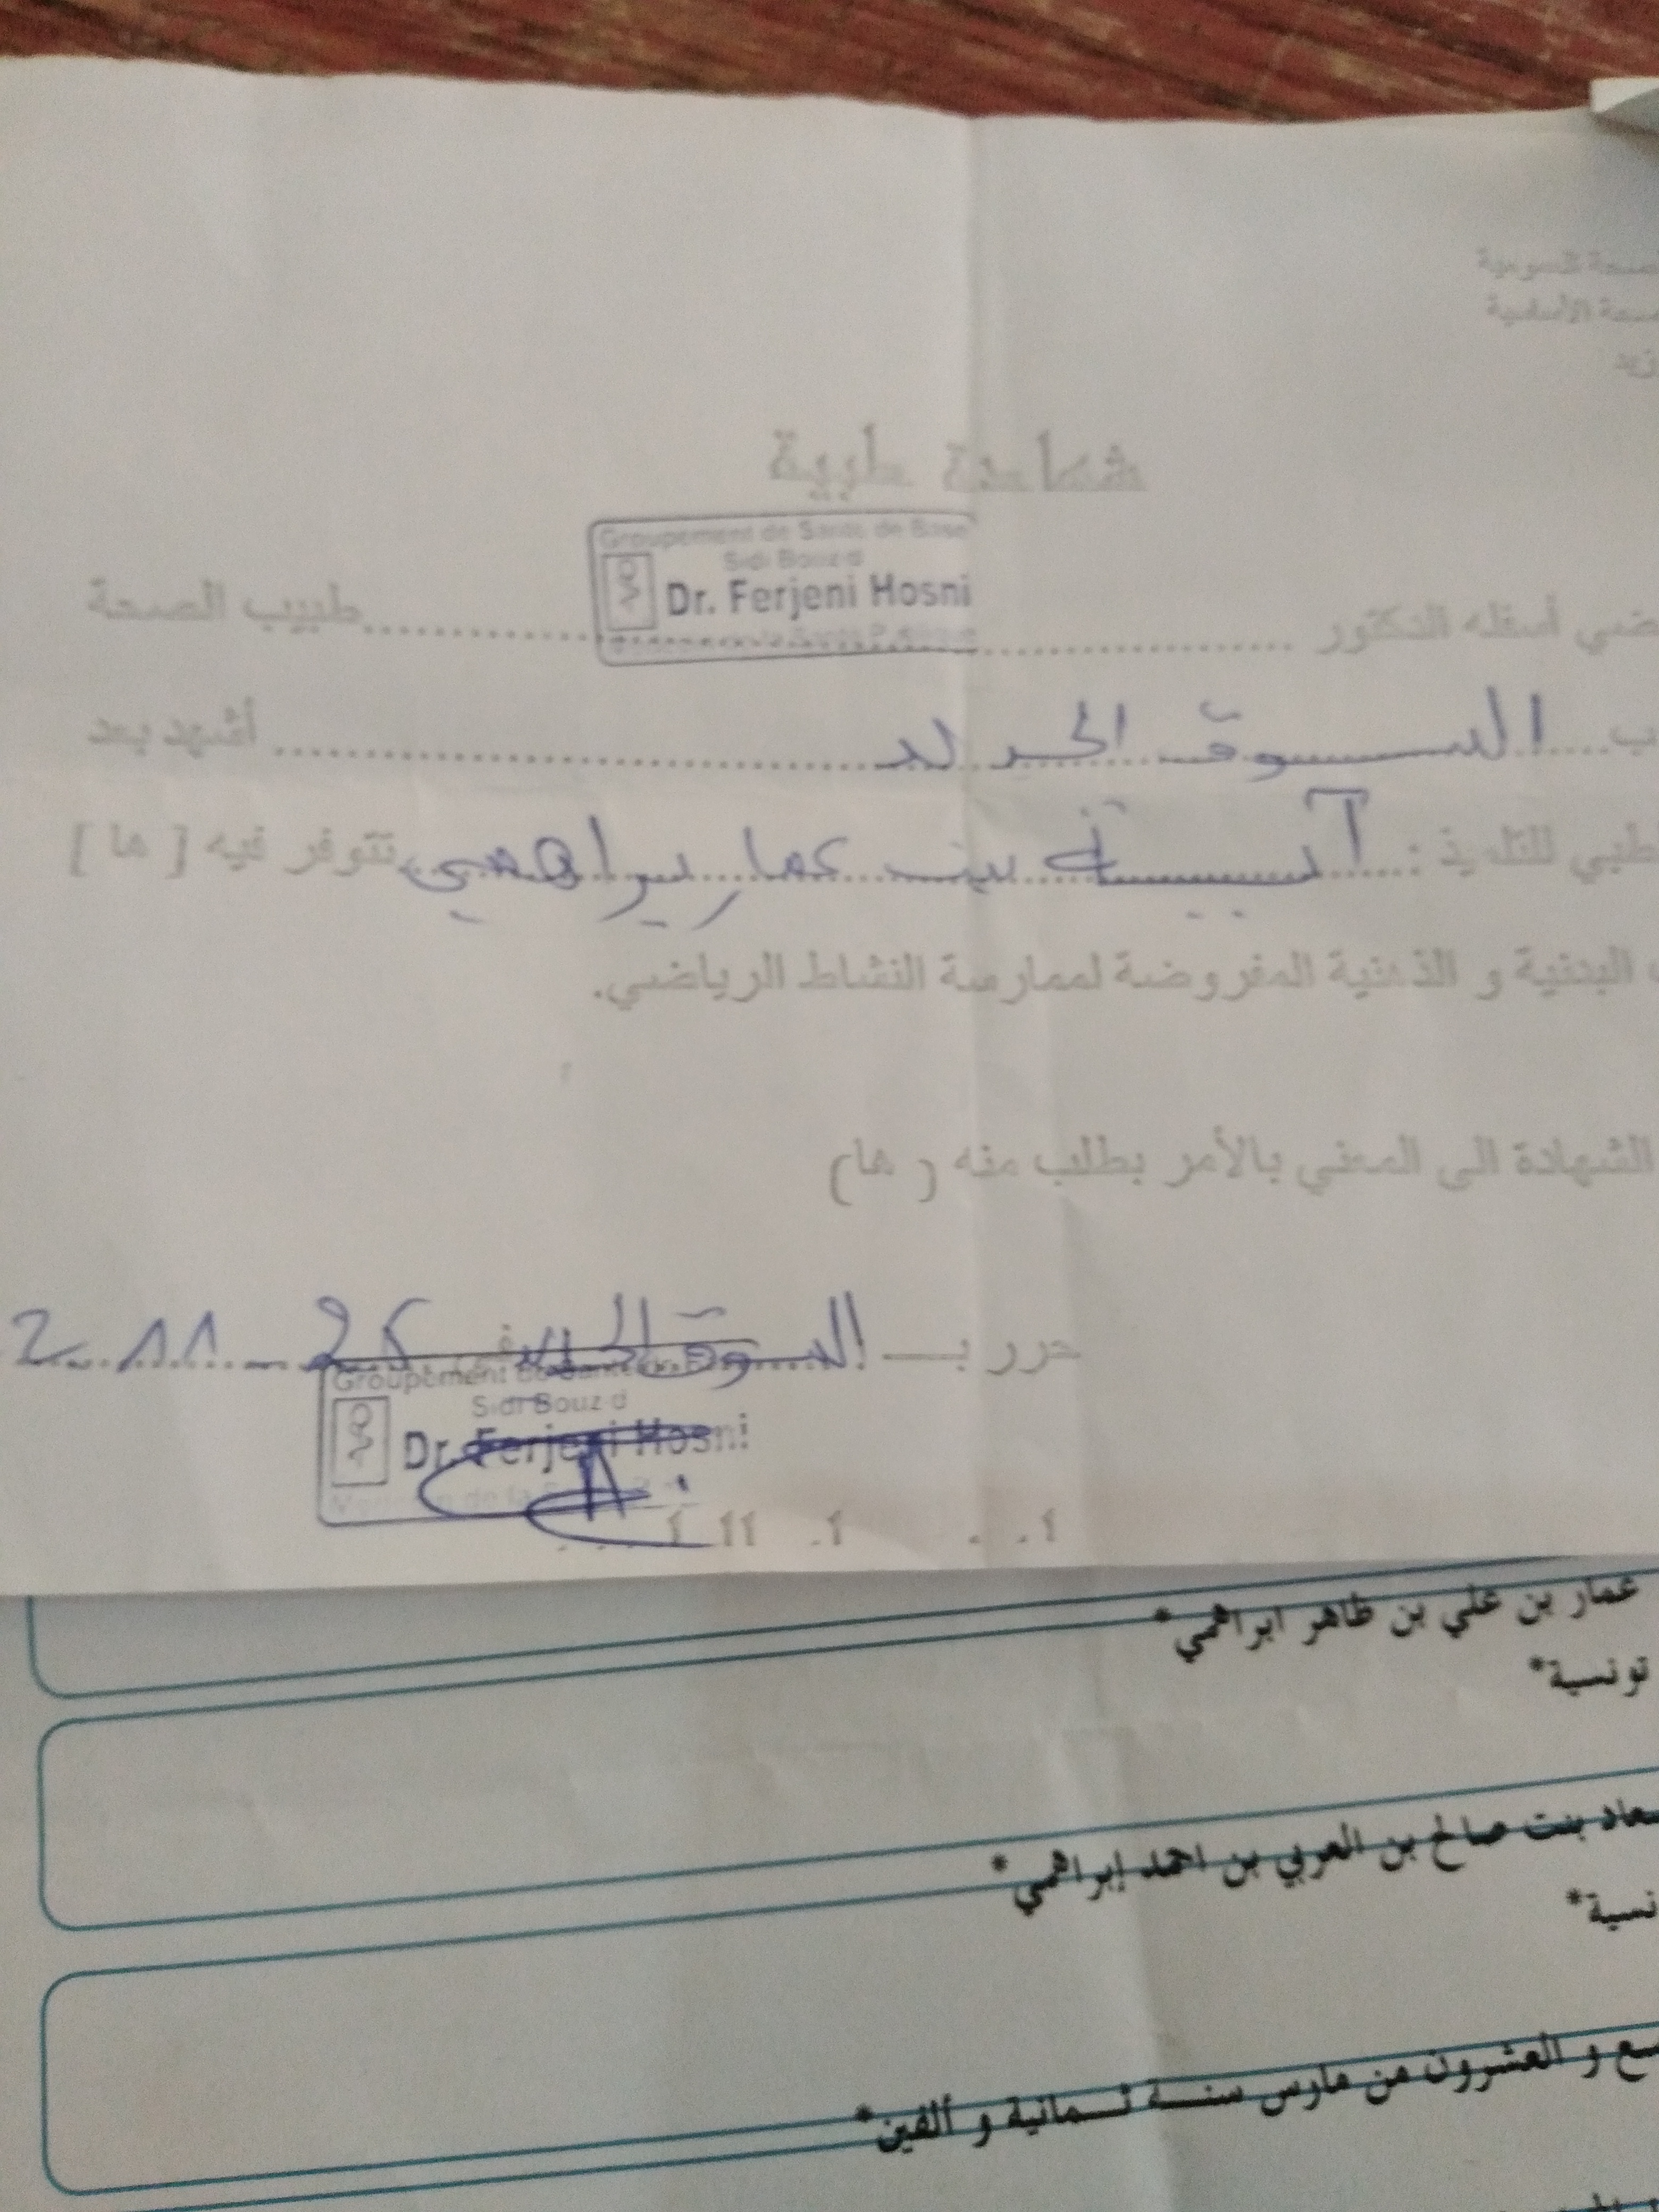 شهادة طبية
Groupement de Santé de Base
Sidi Bouzid
Dr. Ferjeni Hosni
أسفله الدكتور ............ طبيب الصحة
السوق الجديد ............ أشهد بعد
للتلميذ : آسية بنت عمار براهمي تتوفر فيه [ ها ]
البدنية و الذهنية المفروضة لممارسة النشاط الرياضي.
الشهادة الى المعني بالأمر بطلب منه ( ها )
حرر بـ السوق الجديد في 26 11 2
Groupement de Santé
Sidi Bouzid
Dr. Ferjeni Hosni
عمار بن علي بن طاهر ابراهمي*
تونسية*
بنت صالح بن العربي بن احمد إبراهمي*
و العشرون من مارس سنة ثمانية و ألفين*